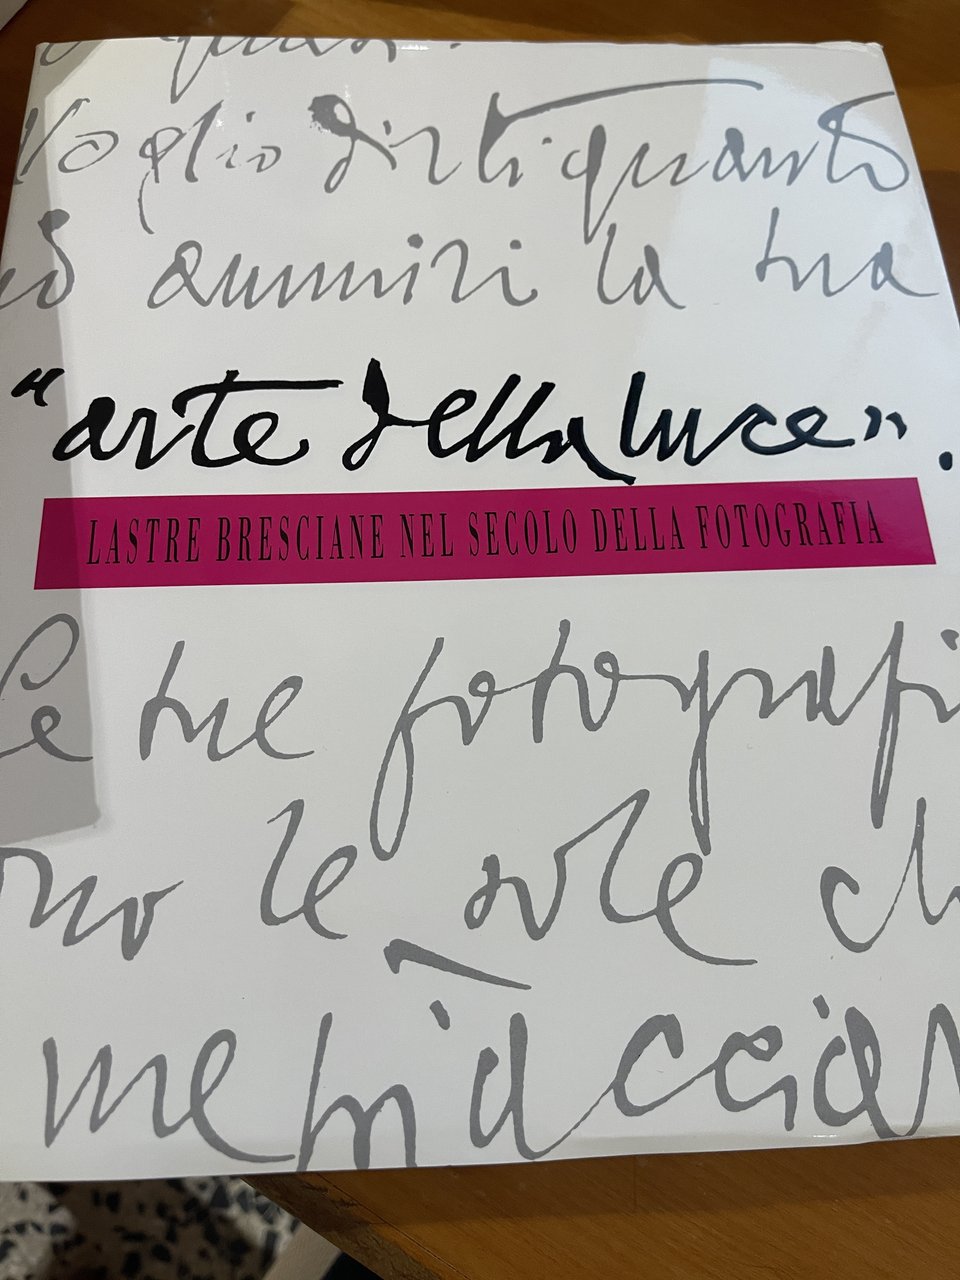 Voglio dirti quanto
ammiri la tua
"arte della luce".
LASTRE BRESCIANE NEL SECOLO DELLA FOTOGRAFIA
Le tue fotografi
no le sole ch
me piaccian